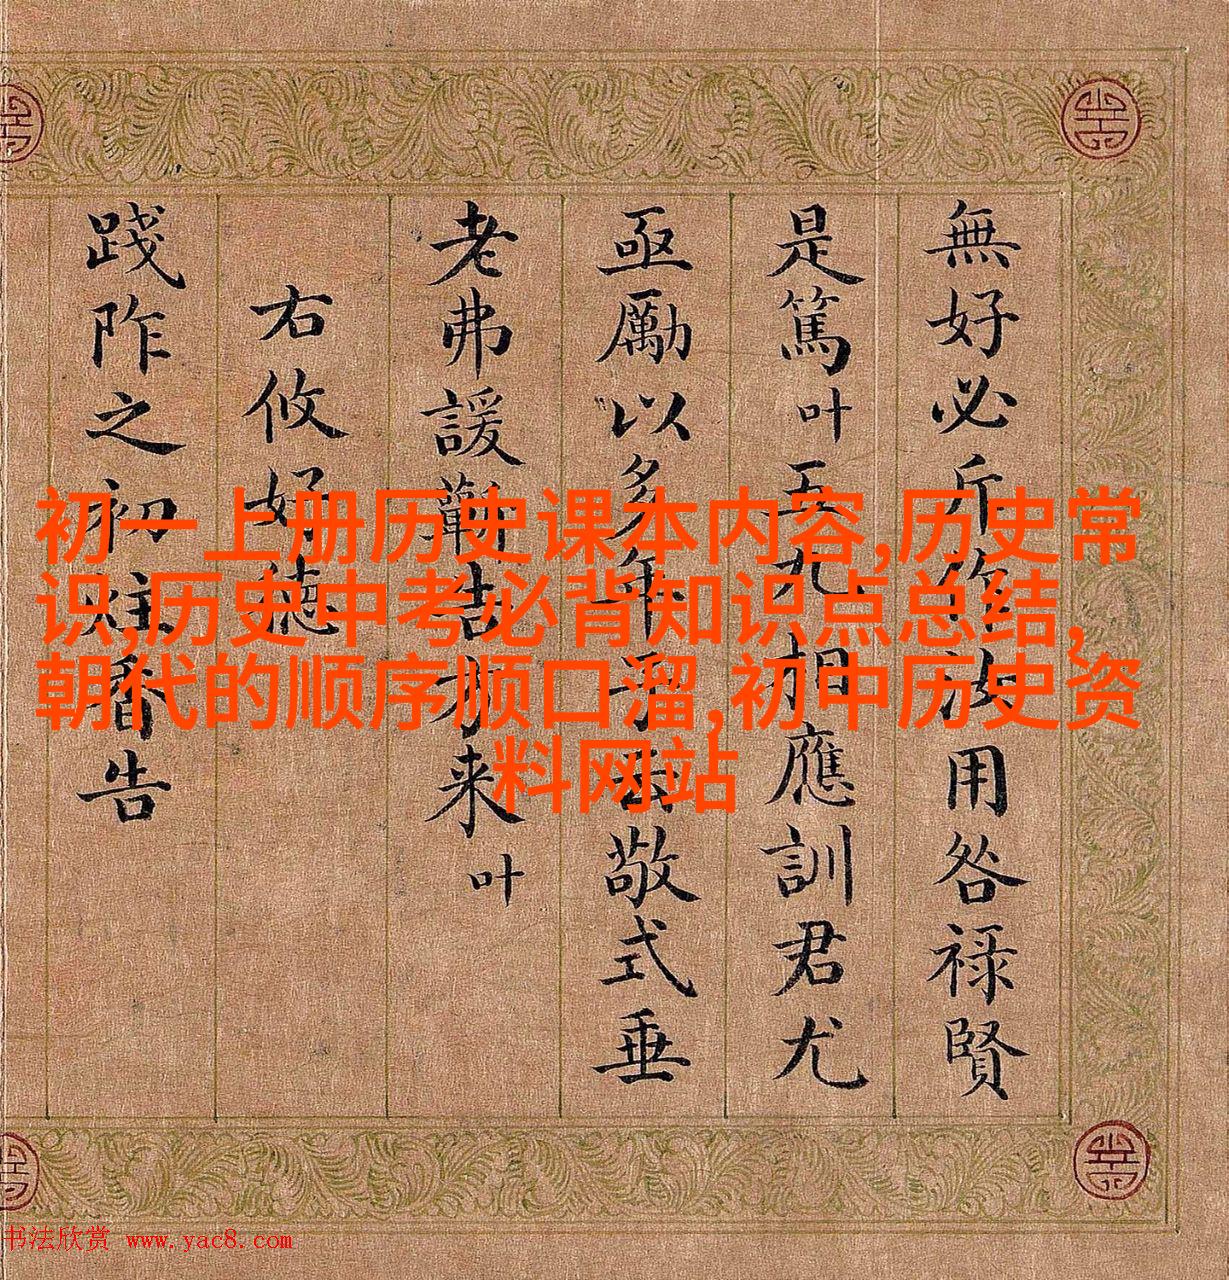 無好必斤汝用咎祿賢
是篤叶五九相應訓君尤
亟勵以多年予敬式垂
老弗諼告方来叶
右攸好德
踐阼之初炷香告
初一上册历史课本内容,历史常
识,历史中考必背知识点总结,
朝代的顺序顺口溜,初中历史资
料网站
书法欣赏 www.yac8.com